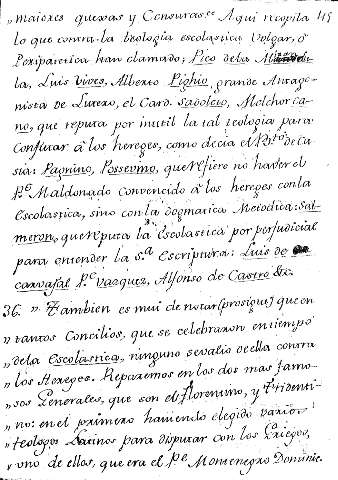 „ maiores quexas y Censuras &c Aqui recopila 115
lo que contra la theologia escolastica Vulgar, ó
Peripatetica han clamado; Pico de la Mirandu-
la, Luis Vives, Alberto Pighio, grande Antago-
nista de Lutero, el Card. Sadoleto, Melchor Ca-
no, que reputa por inutil la tal teologia para
Confutar á los hereges, como decia el de Ca-
sia: Pagnino, Possevino, que refiere no haver el
Pe Maldonado convencido á los hereges con la
Escolastica, sino con la dogmatica Metodica: Sal-
meron, que reputa la Escolastica por perjudicial
para entender la Sa Escriptura: Luis de
Carvajal Pe Vazquez, Alfonso de Castro &c.
36. „ Tambien es mui de notar (prosigue) que en
„ tantos Concilios, que se celebraron en tiempo
„ de la Escolastica, ninguno se valio de ella contra
„ los Hereges. Reparemos en los dos mas famo-
„ sos Generales, que son el florentino, y Tridenti-
„ no: en el primero haviendo elegido varios
„ teologos Latinos para disputar con los Griegos,
„ uno de ellos, que era el Pe Montenegro Dominic.